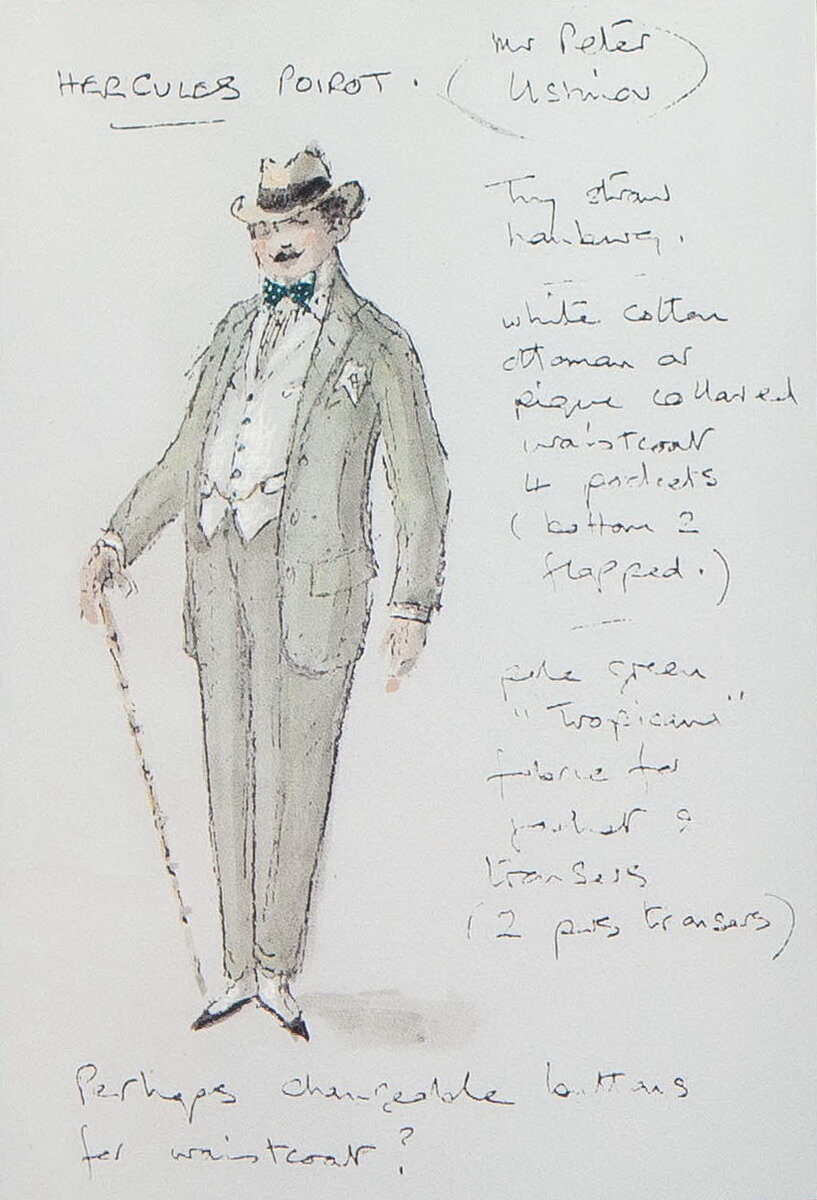 HERCULES POIROT.
(Mr Peter
Ustinov)
Tiny straw
hamburg.
white cotton
ottoman or
pique collared
waistcoat
4 pockets
(bottom 2
flapped.)
pale green
"Tropicana"
fabric for
jacket &
trousers
(2 prs trousers)
Perhaps changeable buttons
for waistcoat?